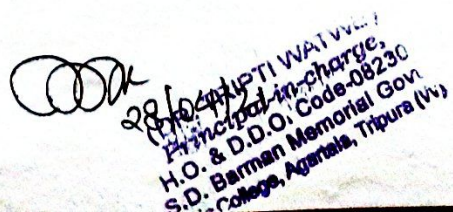 28/04/21
TRIPTI WATWE
Principal-in-charge,
H.O. & D.D.O. Code-08230
S.D. Barman Memorial Govt
College, Agartala, Tripura (W)